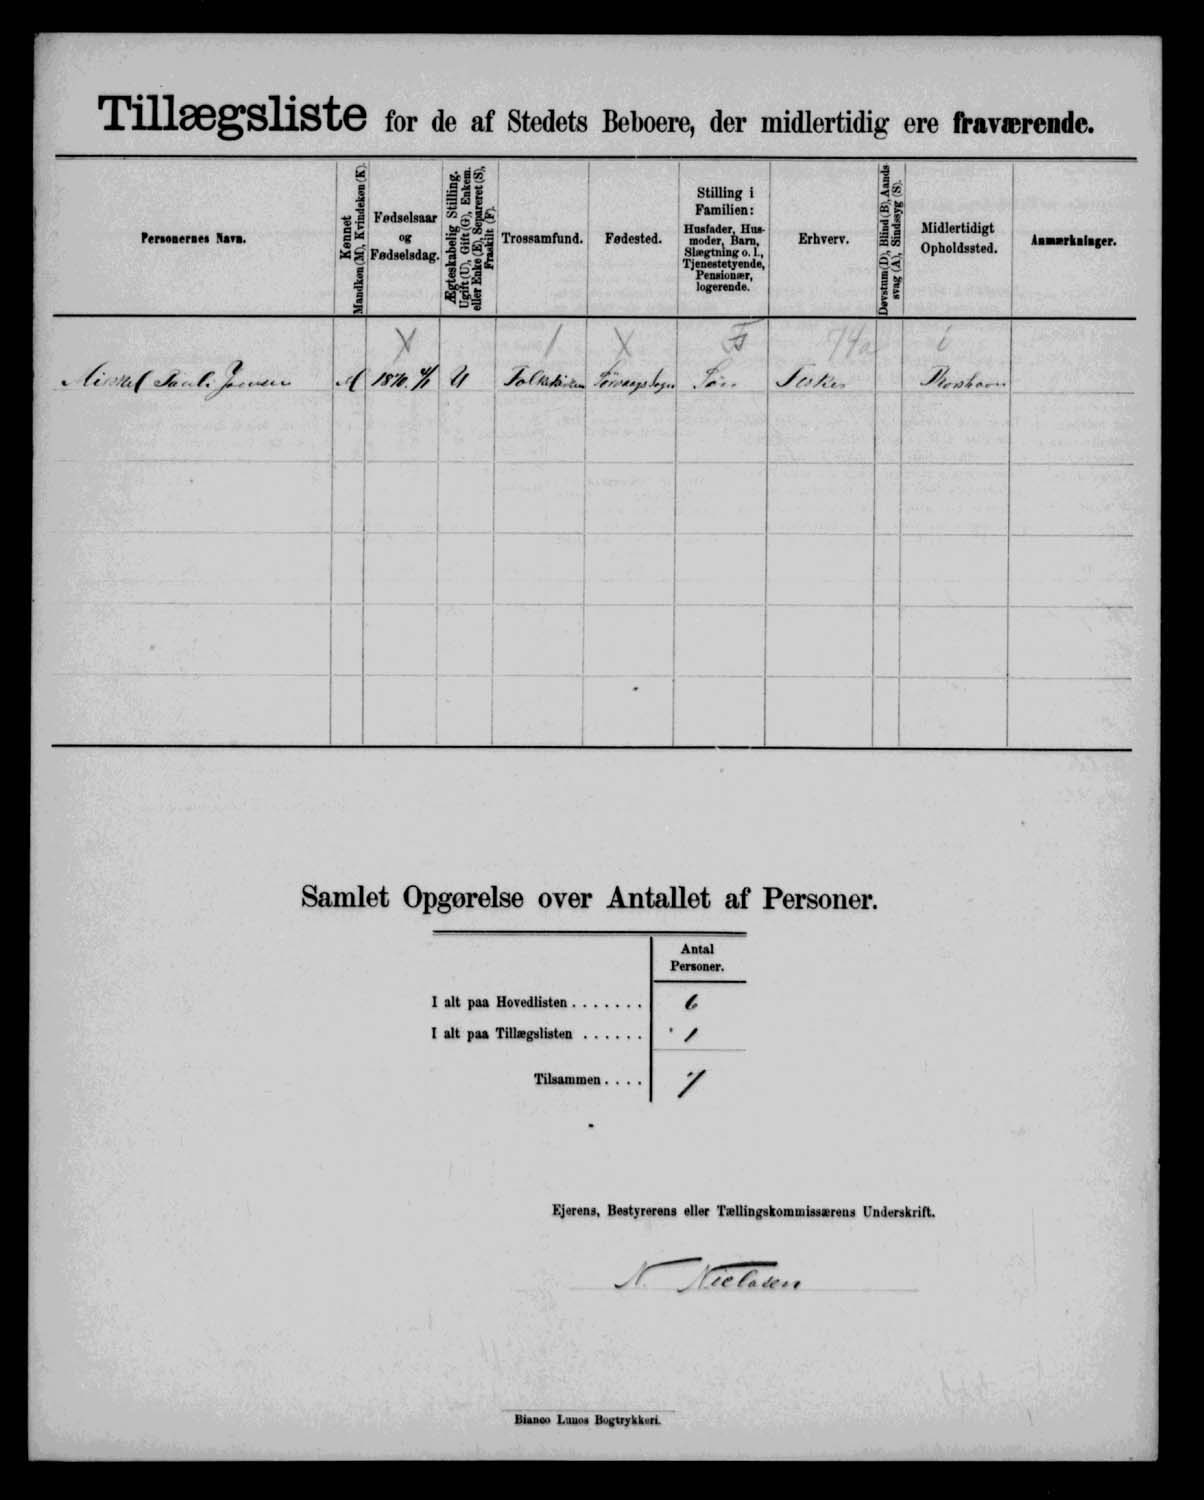 Tillægsliste for de af Stedets Beboere, der midlertidig ere fraværende.
Personernes Navn.
Kønnet
Mandkøn (M), Kvindekøn (K).
Fødselsaar
og
Fødselsdag.
Ægteskabelig Stilling.
Ugift (U), Gift (G), Enkem.
eller Enke (E), Separeret (S),
Fraskilt (F).
Trossamfund.
Fødested.
Stilling i
Familien:
Husfader, Hus-
moder, Barn,
Slægtning o. l.,
Tjenestetyende,
Pensionær,
logerende.
Erhverv.
Døvstum (D), Blind (B), Aands-
svag (A), Sindssyg (S).
Midlertidigt
Opholdssted.
Anmærkninger.
X / X 74a i
Mikkel Pauli Joensen M 1870 U Folkekirken Sörvaags Sogn Sön Fisker Thorshavn
Samlet Opgørelse over Antallet af Personer.
Antal
Personer.
I alt paa Hovedlisten . . . . . . . 6
I alt paa Tillægslisten . . . . . . 1
Tilsammen . . . . 7
Ejerens, Bestyrerens eller Tællingskommissærens Underskrift.
N. Nielsen
Bianco Lunos Bogtrykkeri.